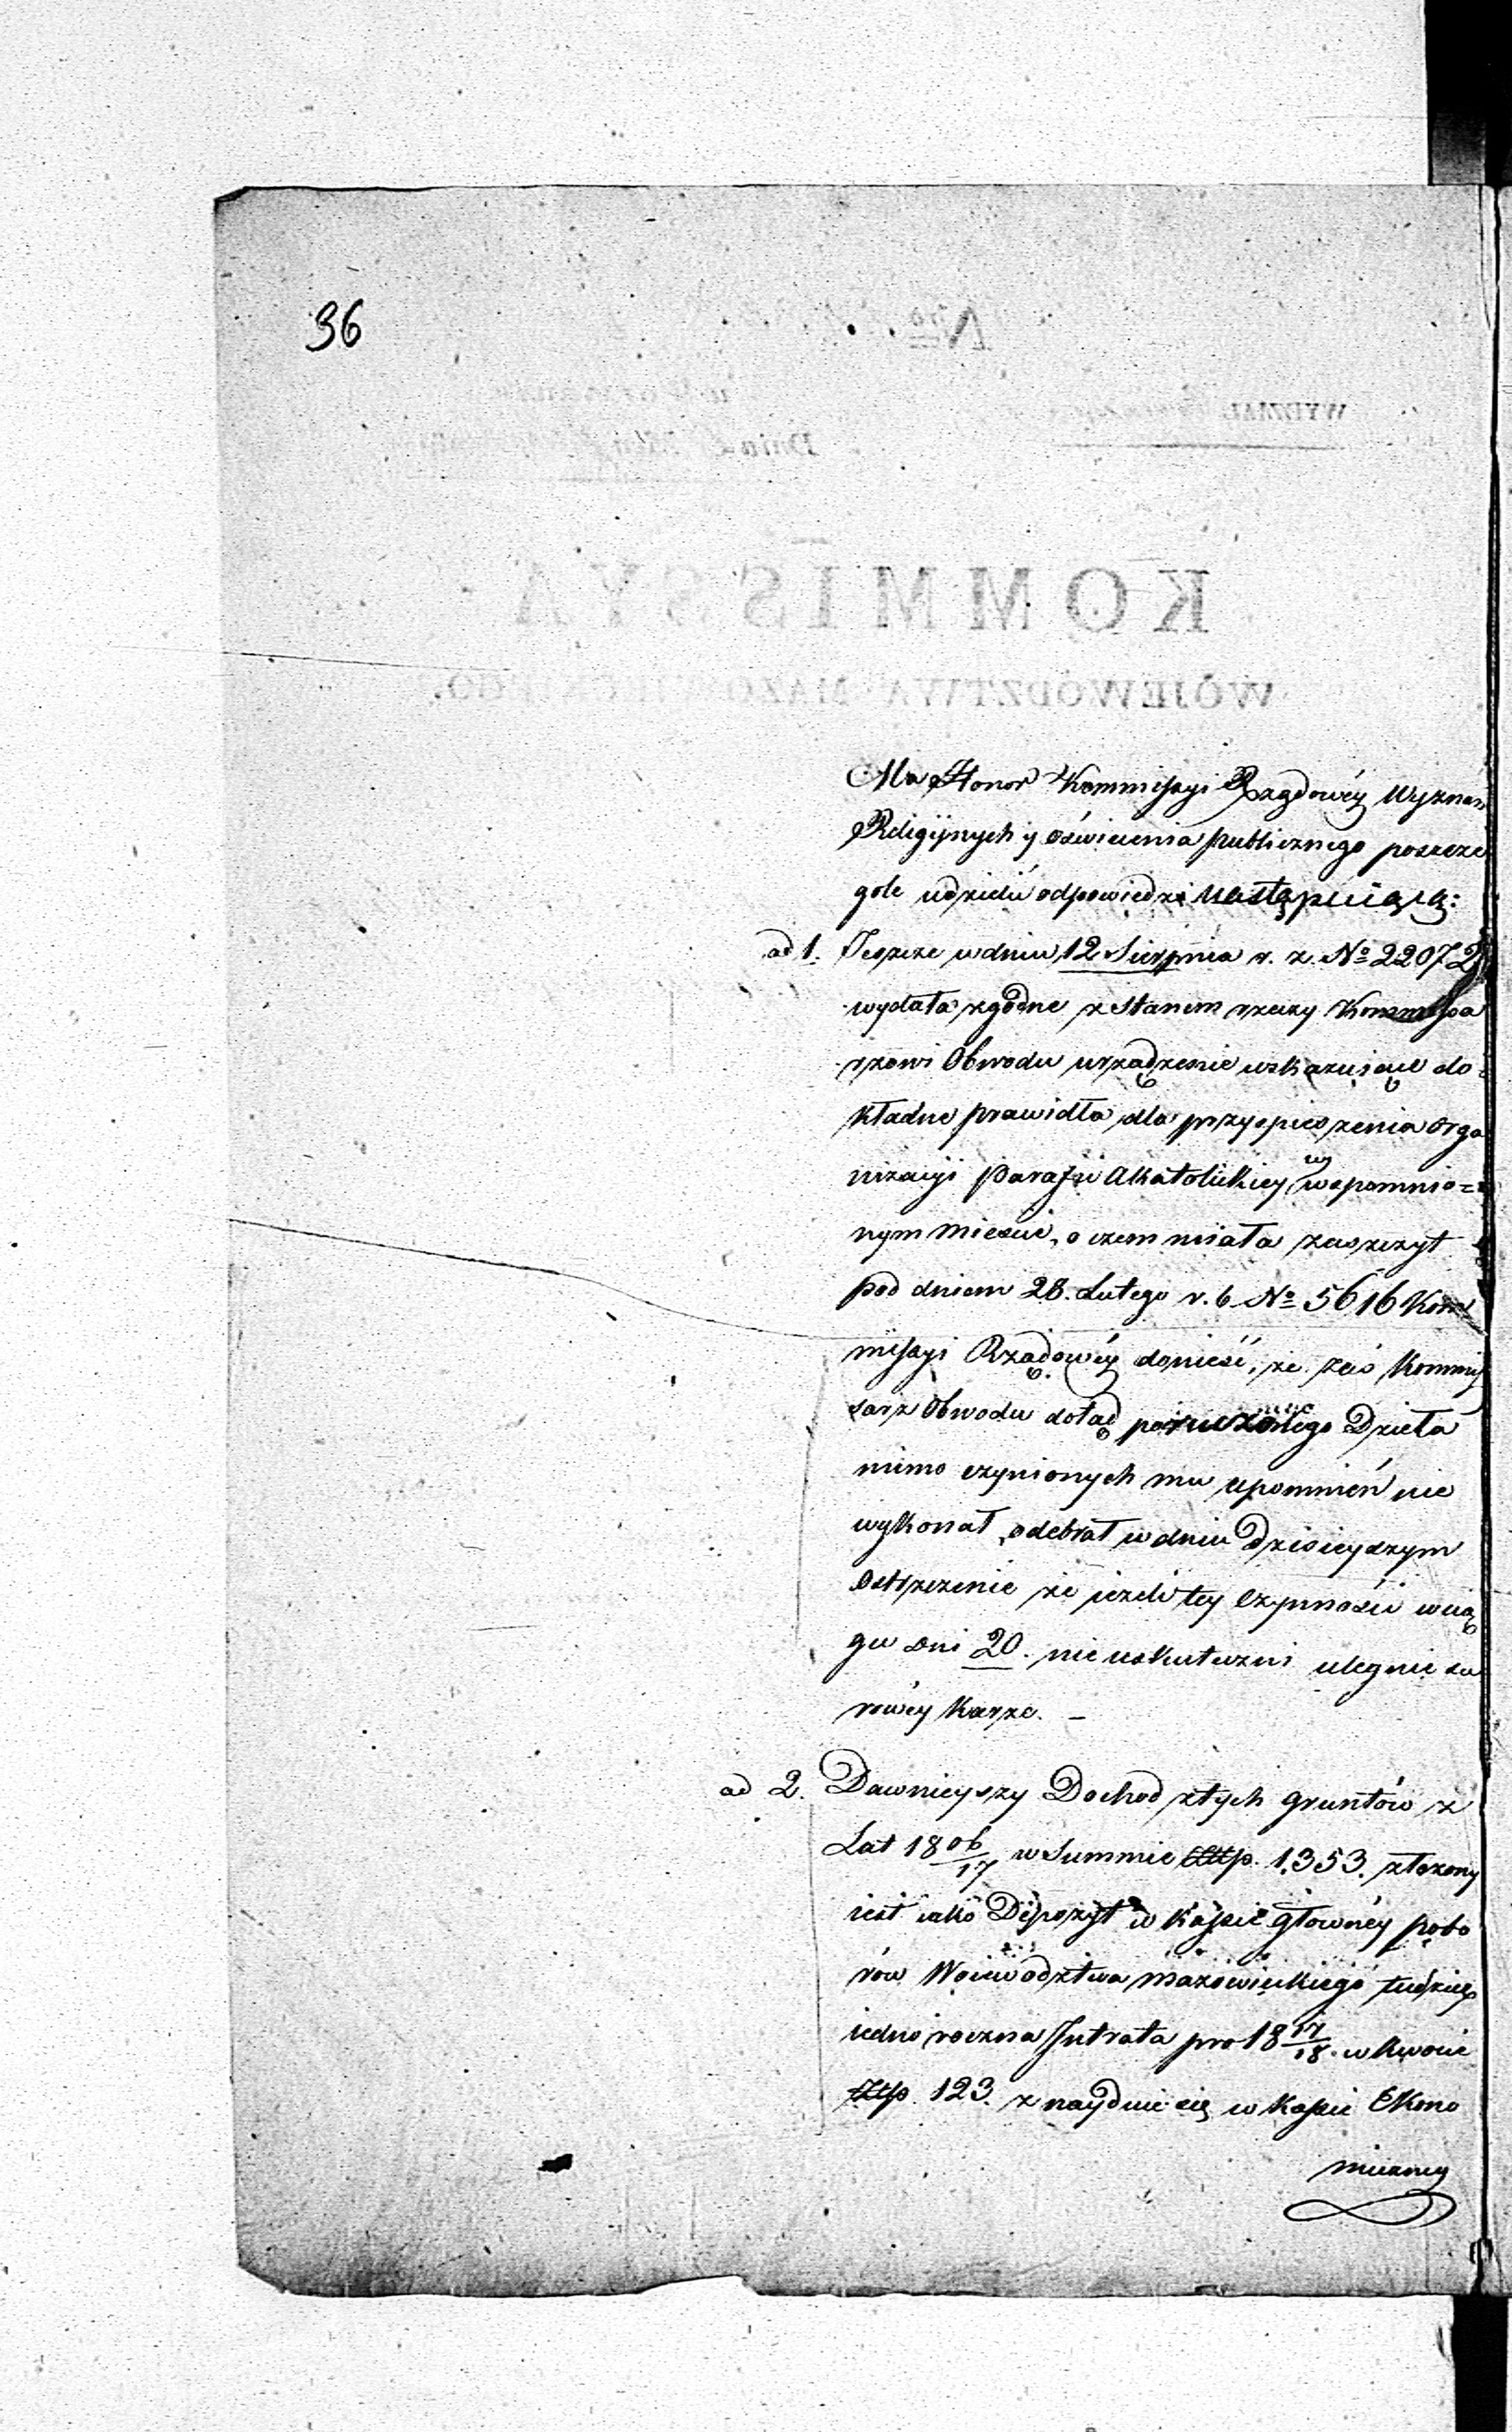 36
Ma Honor Kommissyi Rządowéy Wyznań
Religiynych y oświecenia publicznego poszcze
gole udzielić odpowiedzi następuiącą:
ad 1. Jeszcze w dniu 12 Sierpnia r. z. No 22072
wydała zgodne z stanem rzeczy Kommissa
rzowi Obwodu urządzenie wskazuiące do
kładne prawidła dla przyspieszenia orga
nizacyi Parafii Akatolickiey w wspomnio=
nym mieście, o czem miała zaszczyt
pod dniem 28. Lutego r. b. No 5616 Kom
missyi Rządowéy donieść, że zaś Kommis
sarz Obwodu dotąd poruczonego Dzieła
mimo czynionych mu upomnień nie
wykonał, odebrał w dniu dzisieyszym
ostrzeżenie że ieżeli tey czynności w cią
gu dni 20. nie uskuteczni ulegnie su
rowéy karze. –
ad 2. Dawnieyszy Dochod z tych gruntów z
Lat 18 06/17 w Summie Złłp. 1,353. złożony
iest iako Depozyt w Kassie główney pobo
rów Woiewodztwa mazowieckiego tudzież
iedno roczna Intrata pro 18 17/18. w kwocie
Złłp. 123. znayduie się w Kassie Ekono
miczney
KOMMISSYA
WOJEWODZTWA MAZOWIECKIEGO.
WYDZIAŁ
Dnia
Nro